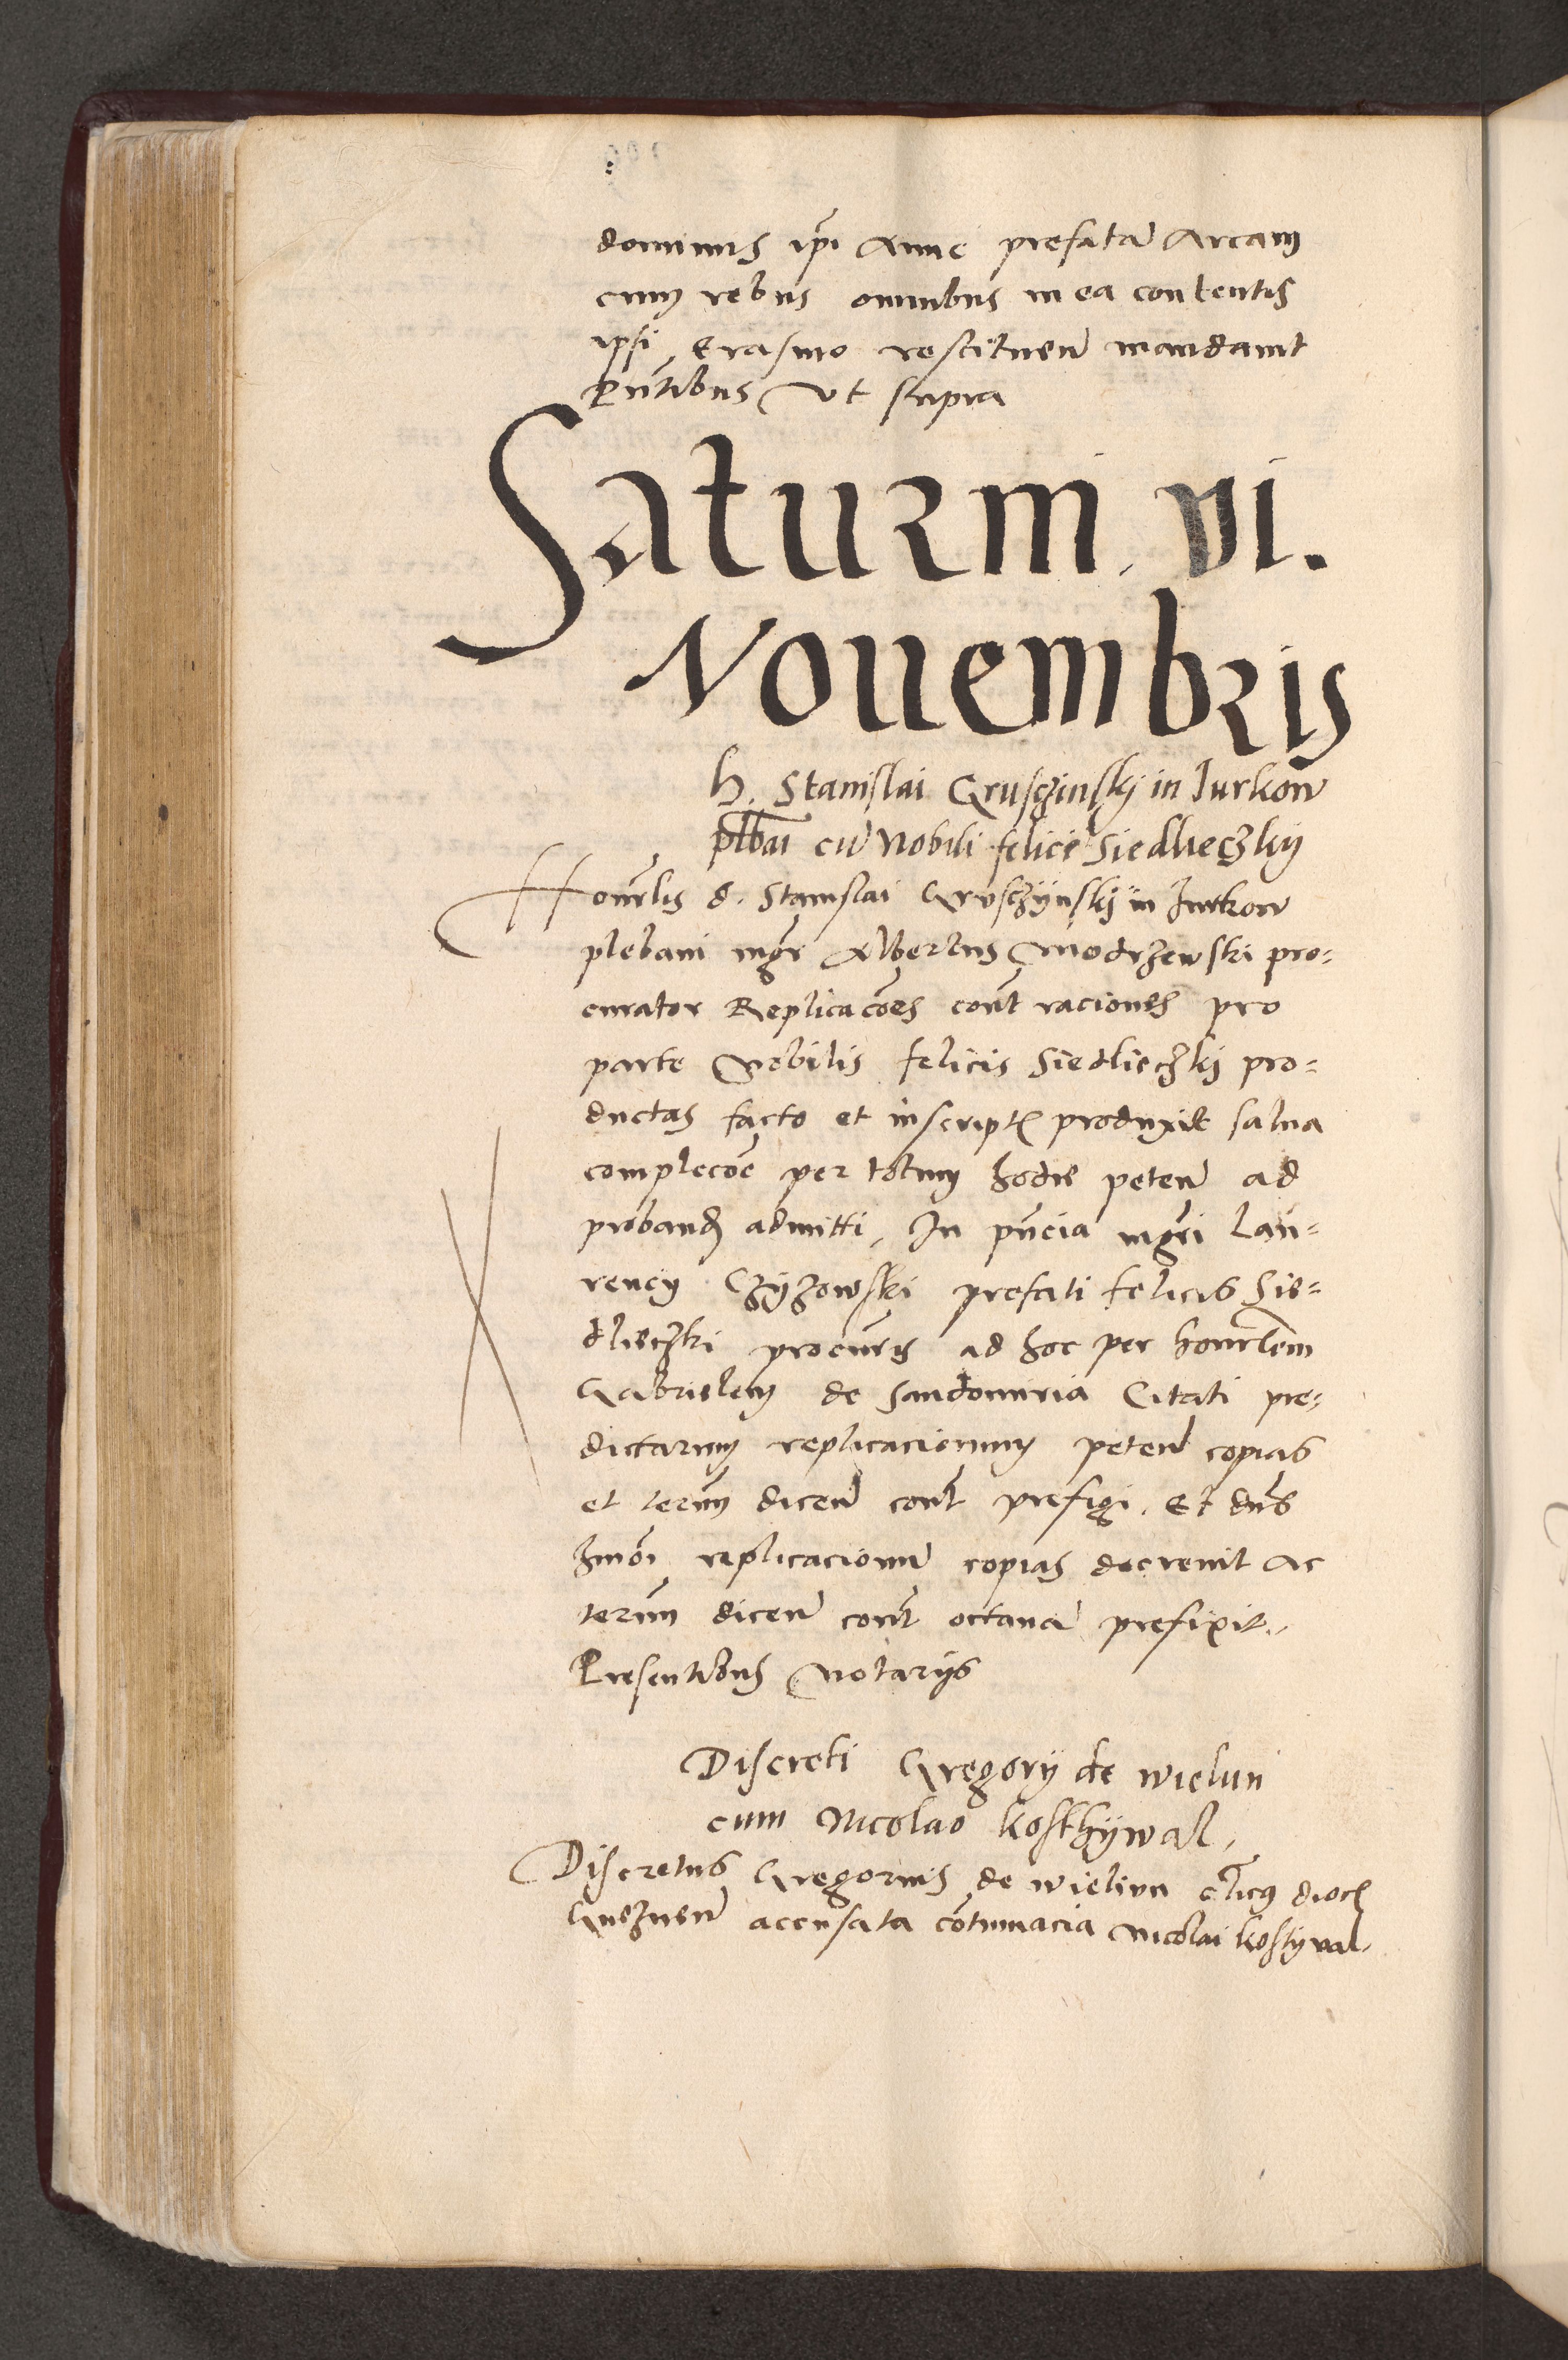 dominus ipi Anne prefatā Arcam
cum rebus omnibus in ea contentis
ipsi Erasmo restituen̄ mandauit
Pn̄tibus Vt supra
Saturni. vi.
Nouembris
h. Stanislai Gruszinskij in Jurkow
plb̄ai cū Nobili felice Siedlieczkij
Honrl̄is d. Stanislai Gruszijnskij in Jurkow
plebani mgr̄ Albertus Modrzewski pro=
curator Replicacōes cont̄ raciones pro
parte Nobilis felicis Siedlieczkj pro=
ductas facto et inscript̄ produxit salua
complecōe per totum hodie peten̄ ad
proband̄ admitti, In pn̄cia mgr̄i Lau=
rency Czÿzowski prefati felicis Sie=
dlieczki procur̄is ad hoc per honrl̄em
Gabrielem de Sandomiria Citati pre=
dictarum replicacionum peten̄ copias
et term̄ dicen̄ cont̄ prefigi. Et dn̄s
hmōi replicacionū copias decreuit Ac
term̄ dicen̄ cont̄ octauā prefixit.
Presentibus Notarijs
Discreti Gregorij de wielun
cum Nicolao kosthÿwal,
Discretus Gregorius de wielivn cl̄icus dioc̄
Gneznen̄ accusata cōtumacia Nicolai kostÿval.